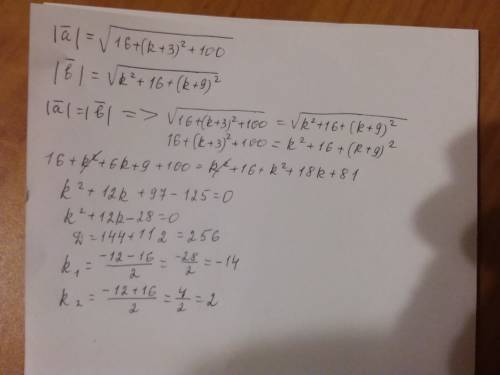 |a̅| = √16+(k+3)²+100
|b̅| = √k²+16+(k+9)²
|a̅|=|b̅| => √16+(k+3)²+100 = √k²+16+(k+9)²
16+(k+3)²+100 = k²+16+(k+9)²
16+k²+6k+9+100=k²+16+k²+18k+81
k²+12k+97-125=0
k²+12k-28=0
D=144+112=256
k₁ = -12-16/2 = -28/2 = -14
k₂ = -12+16/2 = 4/2 = 2